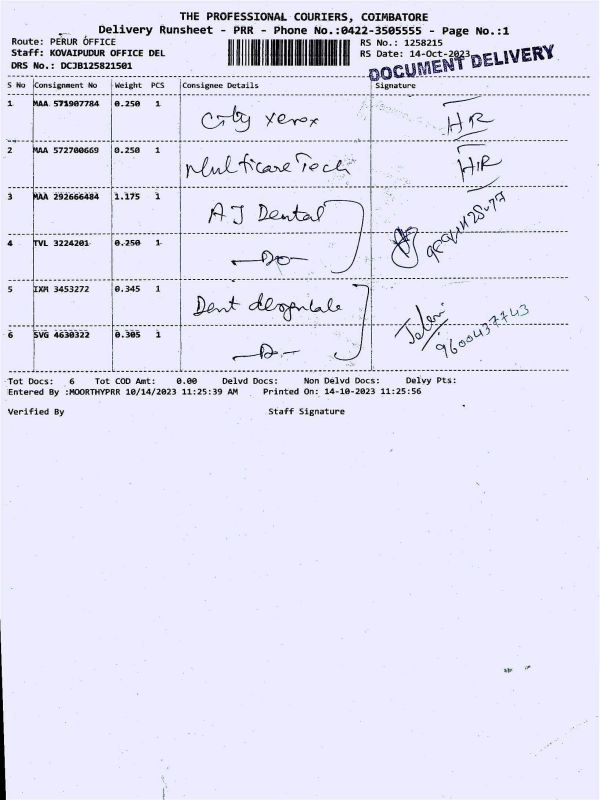 THE PROFESSIONAL COURIERS, COIMBATORE
Delivery Runsheet - PRR - Phone No.:0422-3505555 - Page No.:1
Route: PERUR OFFICE RS No.: 1258215
Staff: KOVAIPUDUR OFFICE DEL RS Date: 14-Oct-2023
DRS No.: DCJB125821501 DOCUMENT DELIVERY
S No Consignment No Weight PCS Consignee Details Signature
1 MAA 571907784 0.250 1 City Xerox HR
2 MAA 572700669 0.250 1 Multicare Tech HR
3 MAA 292666484 1.175 1 AJ Dental
4 TVL 3224201 0.250 1 —Do—
5 IXM 3453272 0.345 1 Dent
6 SVG 4630322 0.305 1 —Do— 9600437743
Tot Docs: 6 Tot COD Amt: 0.00 Delvd Docs: Non Delvd Docs: Delvy Pts:
Entered By :MOORTHYPRR 10/14/2023 11:25:39 AM Printed On: 14-10-2023 11:25:56
Verified By Staff Signature